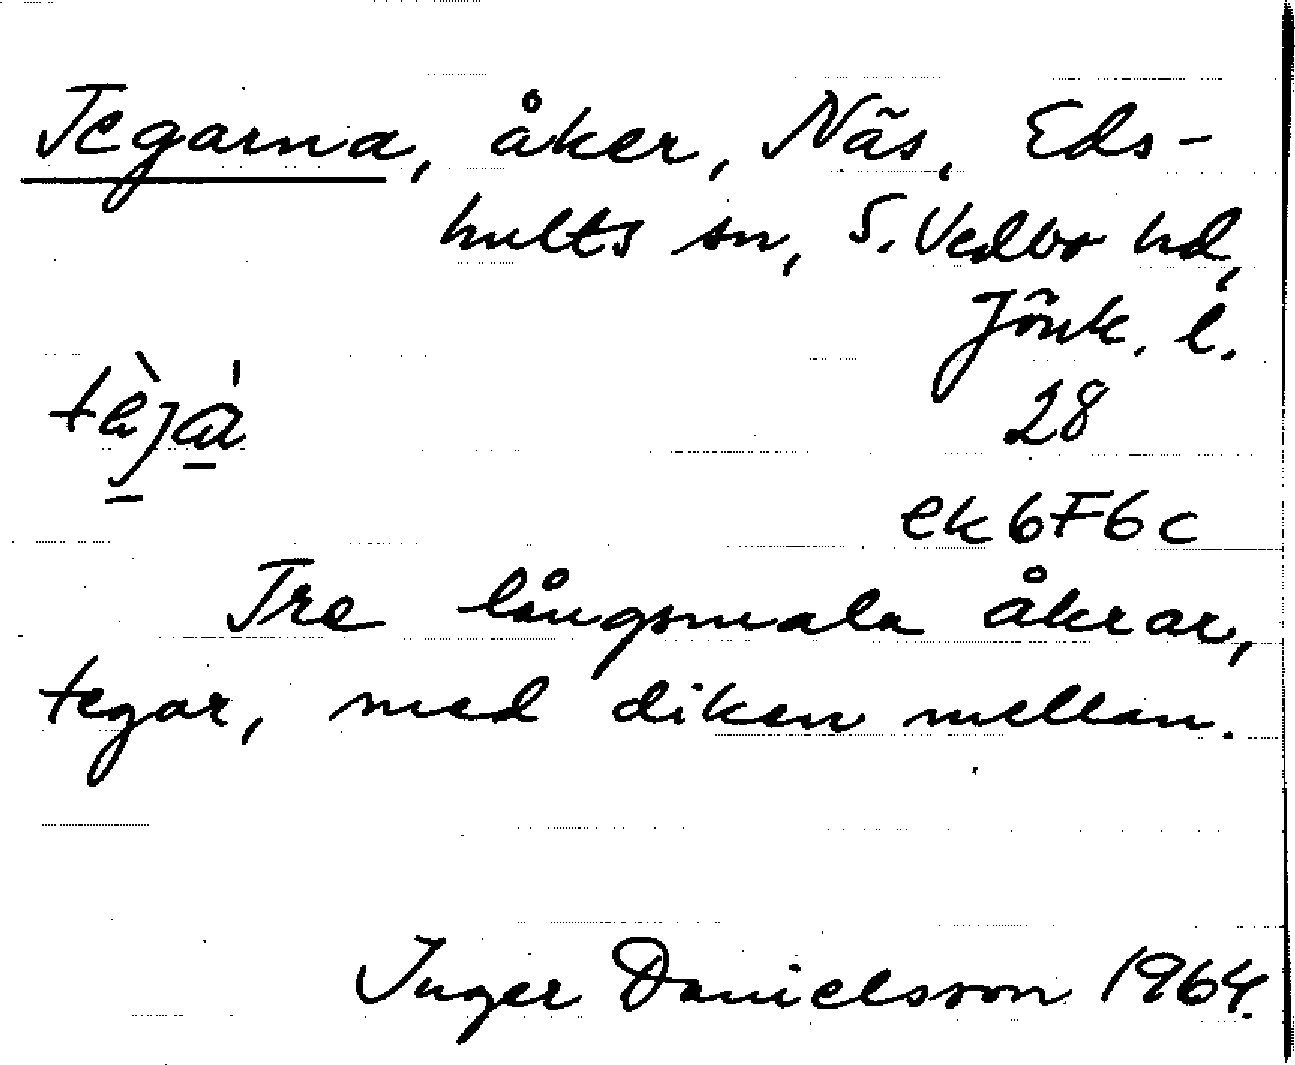 Tegarna, åker, Näs, Eds-
hults sn, S. Vedbo hd,
Jönk. l.
28
ek6F6c
Tre långsmala åkrar,
tegar, med diken mellan.
Inger Danielsson 1964.